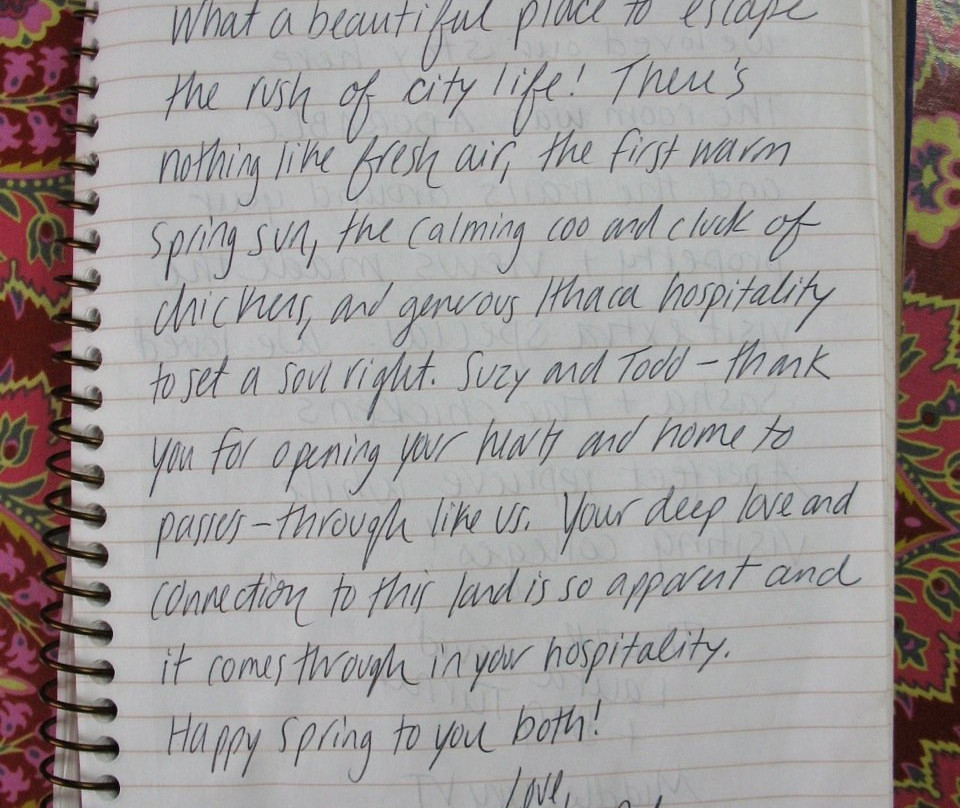 What a beautiful place to escape
the rush of city life! There's
nothing like fresh air, the first warm
spring sun, the calming coo and cluck of
chickens, and generous Ithaca hospitality
to set a soul right. Suzy and Todd - thank
you for opening your hearts and home to
passers-through like us. Your deep love and
connection to this land is so apparent and
it comes through in your hospitality.
Happy Spring to you both!
Love,